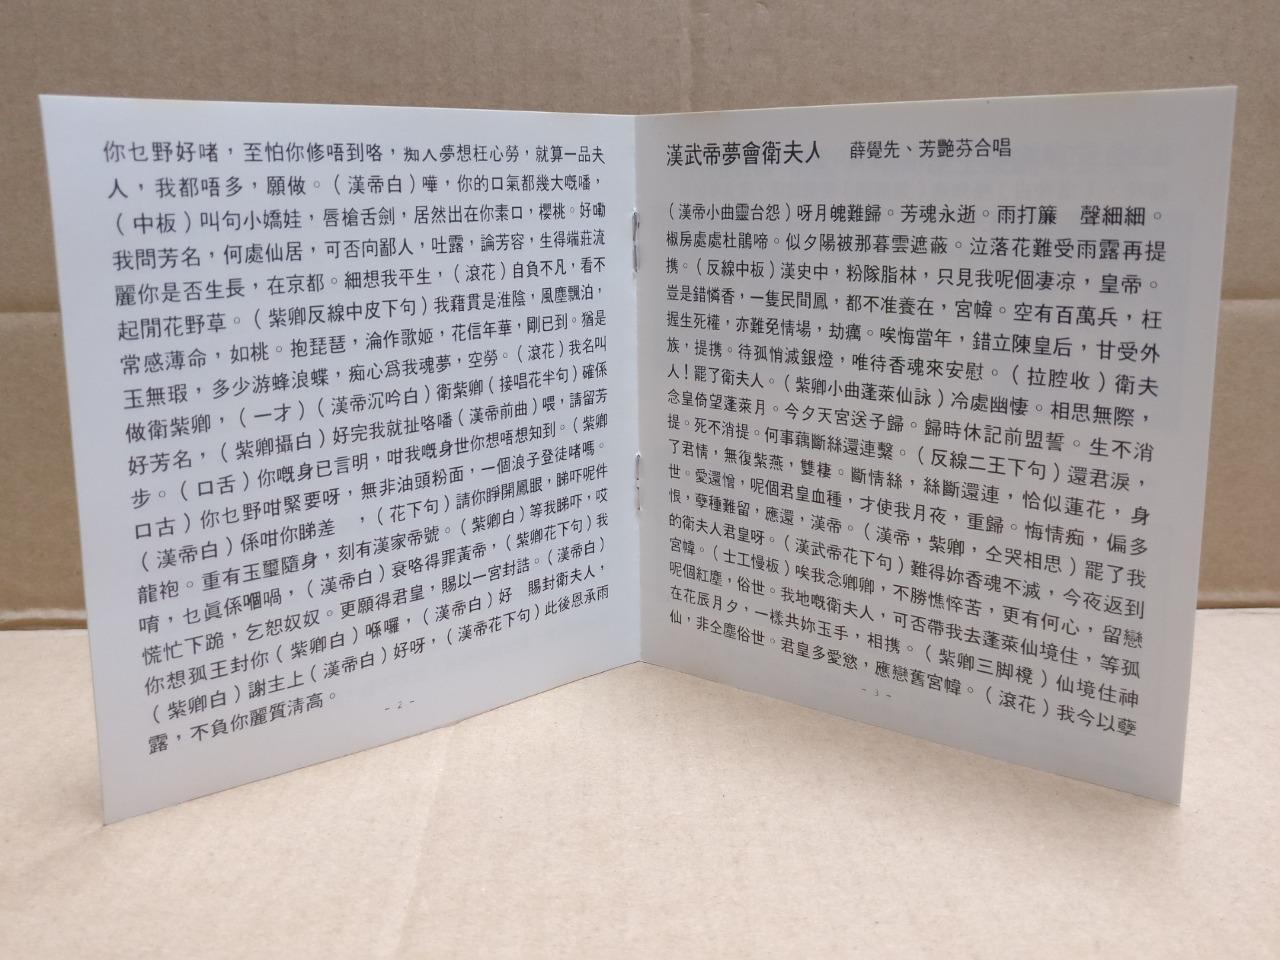 你乜野好啫，至怕你修唔到咯，痴人夢想枉心勞，就算一品夫
人，我都唔多，願做。（漢帝白）嘩，你的口氣都幾大嘅噃，
（中板）叫句小嬌娃，唇槍舌劍，居然出在你素口，櫻桃。好嘞
我問芳名，何處仙居，可否向鄙人，吐露，論芳容，生得端莊流
麗你是否生長，在京都。細想我平生，（滾花）自負不凡，看不
起閒花野草。（紫卿反線中皮下句）我藉貫是淮陰，風塵飄泊，
常感薄命，如桃。抱琵琶，淪作歌姬，花信年華，剛已到。猶是
玉無瑕，多少游蜂浪蝶，痴心爲我魂夢，空勞。（滾花）我名叫
做衛紫卿，（一才）（漢帝沉吟白）衛紫卿（接唱花半句）確係
好芳名，（紫卿攝白）好完我就扯咯噃（漢帝前曲）喂，請留芳
步。（口舌）你嘅身已言明，咁我嘅身世你想唔想知到。（紫卿
口古）你乜野咁緊要呀，無非油頭粉面，一個浪子登徒啫嗎。
（漢帝白）係咁你睇差　，（花下句）請你睜開鳳眼，睇吓呢件
龍袍。重有玉璽隨身，刻有漢家帝號。（紫卿白）等我睇吓，哎
唷，乜眞係嗰喎，（漢帝白）衰咯得罪黃帝，（紫卿花下句）我
慌忙下跪，乞恕奴奴。更願得君皇，賜以一宮封誥。（漢帝白）
你想孤王封你（紫卿白）喺囉，（漢帝白）好　賜封衛夫人，
（紫卿白）謝主上（漢帝白）好呀，（漢帝花下句）此後恩承雨
露，不負你麗質淸高。
- 2 -
漢武帝夢會衛夫人　薛覺先、芳艷芬合唱
（漢帝小曲靈台怨）呀月魄難歸。芳魂永逝。雨打簾　聲細細。
椒房處處杜鵑啼。似夕陽被那暮雲遮蔽。泣落花難受雨露再提
携。（反線中板）漢史中，粉隊脂林，只見我呢個淒凉，皇帝。
豈是錯憐香，一隻民間鳳，都不准養在，宮幃。空有百萬兵，枉
握生死權，亦難免情場，劫癘。唉悔當年，錯立陳皇后，甘受外
族，提携。待孤悄滅銀燈，唯待香魂來安慰。（拉腔收）衛夫
人！罷了衛夫人。（紫卿小曲蓬萊仙詠）冷處幽悽。相思無際，
念皇倚望蓬萊月。今夕天宮送子歸。歸時休記前盟誓。生不消
提。死不消提。何事藕斷絲還連繫。（反線二王下句）還君淚，
了君情，無復紫燕，雙棲。斷情絲，絲斷還連，恰似蓮花，身
世。愛還憎，呢個君皇血種，才使我月夜，重歸。悔情痴，偏多
恨，孽種難留，應還，漢帝。（漢帝，紫卿，仝哭相思）罷了我
的衛夫人君皇呀。（漢武帝花下句）難得妳香魂不滅，今夜返到
宮幃。（土工慢板）唉我念卿卿，不勝憔悴苦，更有何心，留戀
呢個紅塵，俗世。我地嘅衛夫人，可否帶我去蓬萊仙境住，等孤
在花辰月夕，一樣共妳玉手，相携。（紫卿三脚櫈）仙境住神
仙，非仝塵俗世。君皇多愛慾，應戀舊宮幃。（滾花）我今以孽
- 3 -